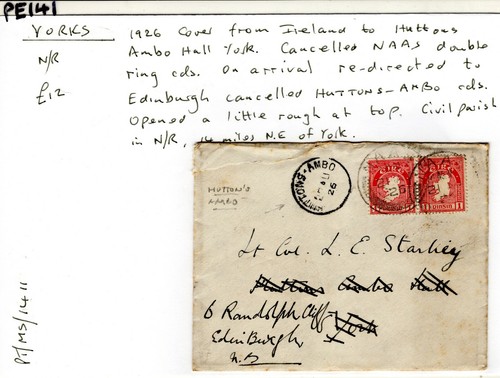 PE141
YORKS
N/R
£12
1926 Cover from Ireland to Huttons
Ambo Hall York. Cancelled NAAS double
ring cds. On arrival re-directed to
Edinburgh cancelled HUTTONS-AMBO cds.
Opened a little rough at top. Civil parish
in N/R, 14 miles N.E of York.
PT/MS/1411
HUTTON'S
AMBO
HUTTONS-AMBO
26
Lt Col. L. E. Starkey
Huttons Ambo Hall
York
6 Randolph Cliff
Edinburgh
N.B